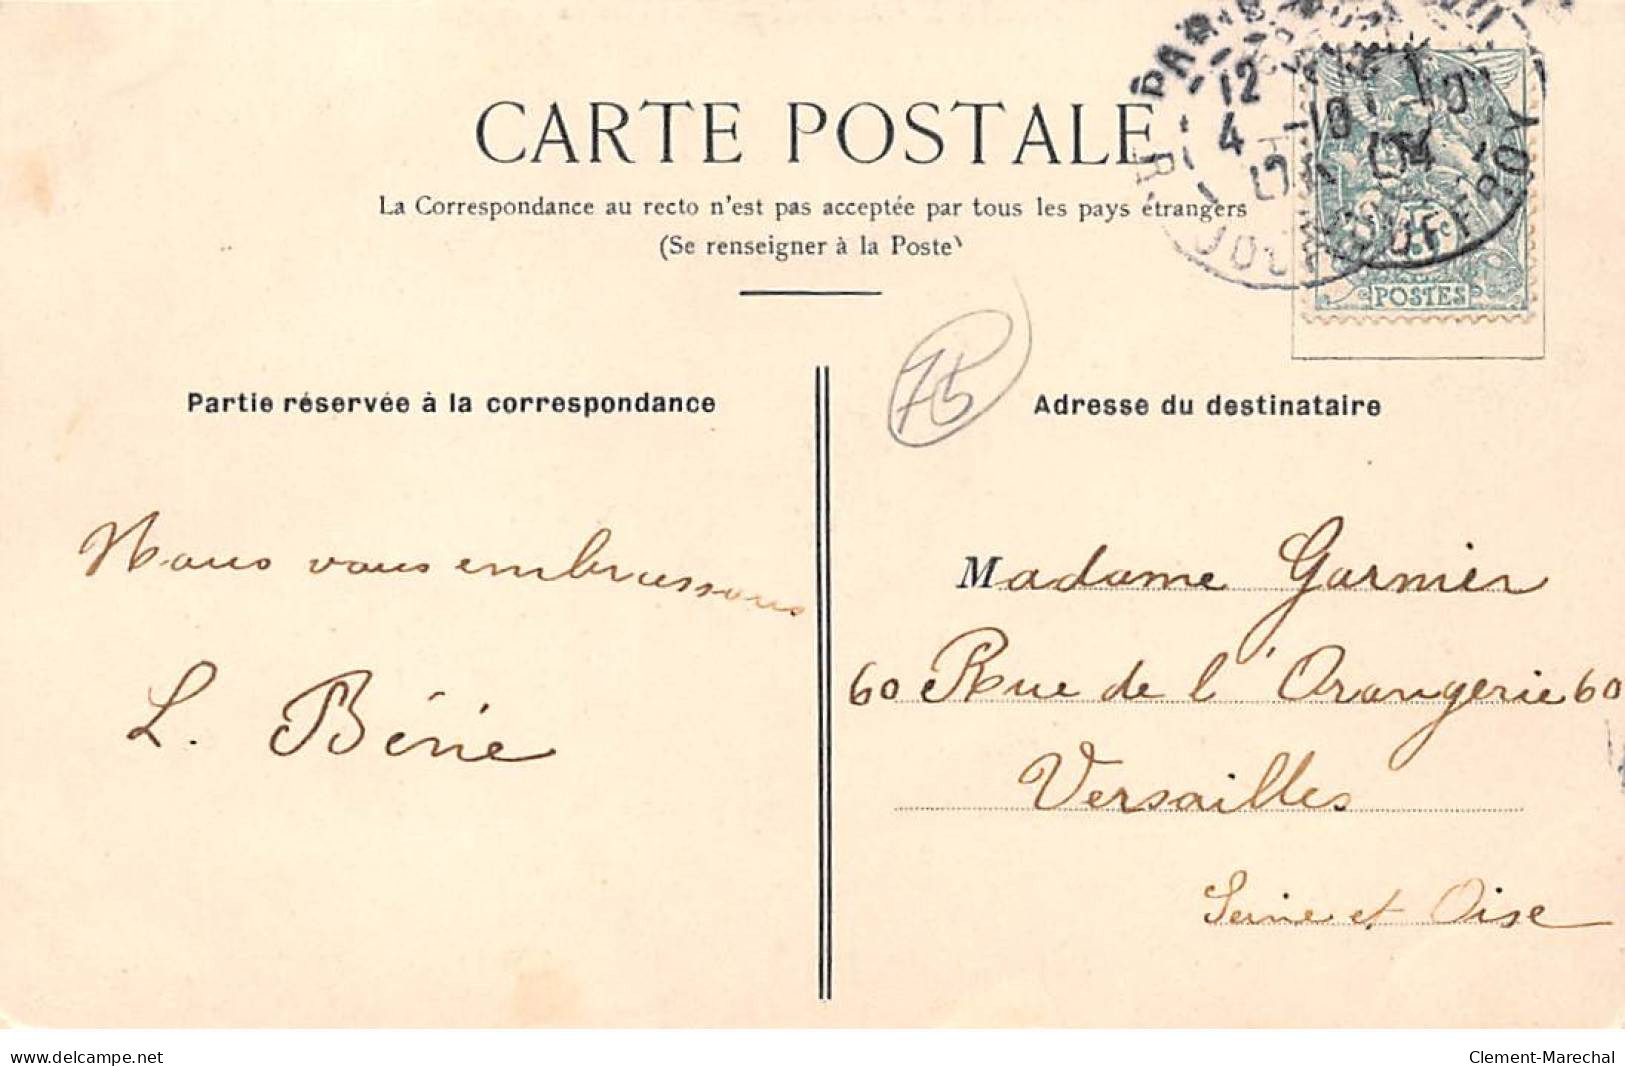 CARTE POSTALE
La Correspondance au recto n'est pas acceptée par tous les pays étrangers
(Se renseigner à la Poste)
PARIS
12
4 -10
04
R. JOUFFROY
5c
POSTES
75
Partie réservée à la correspondance
Adresse du destinataire
Nous vous embrassons
L. Bérie
Madame Garnier
60 Rue de l'Orangerie 60
Versailles
Seine et Oise
www.delcampe.net
Clement-Marechal